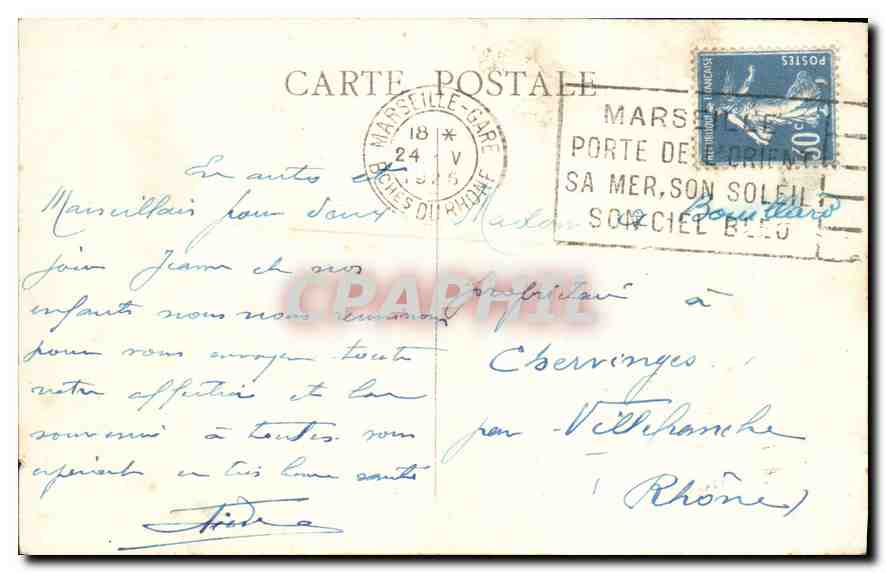 CARTE POSTALE
MARSEILLE-GARE
18 *
24 V
1926
BCHES DU RHONE
MARSEILLE
PORTE DE L'ORIENT
SA MER, SON SOLEIL
SON CIEL BLEU
POSTES
REPUBLIQUE FRANÇAISE
30
En auto et
Marseillais pour deux
jours Jeanne et nos
enfants nous nous réunissons
pour vous envoyer toute
notre affection et bon
souvenir à toutes vous
espérant en très bonne santé
Madame Bouillard
propriétaire à
Chervinges
par Villefranche
(Rhône)
CPAPHIL